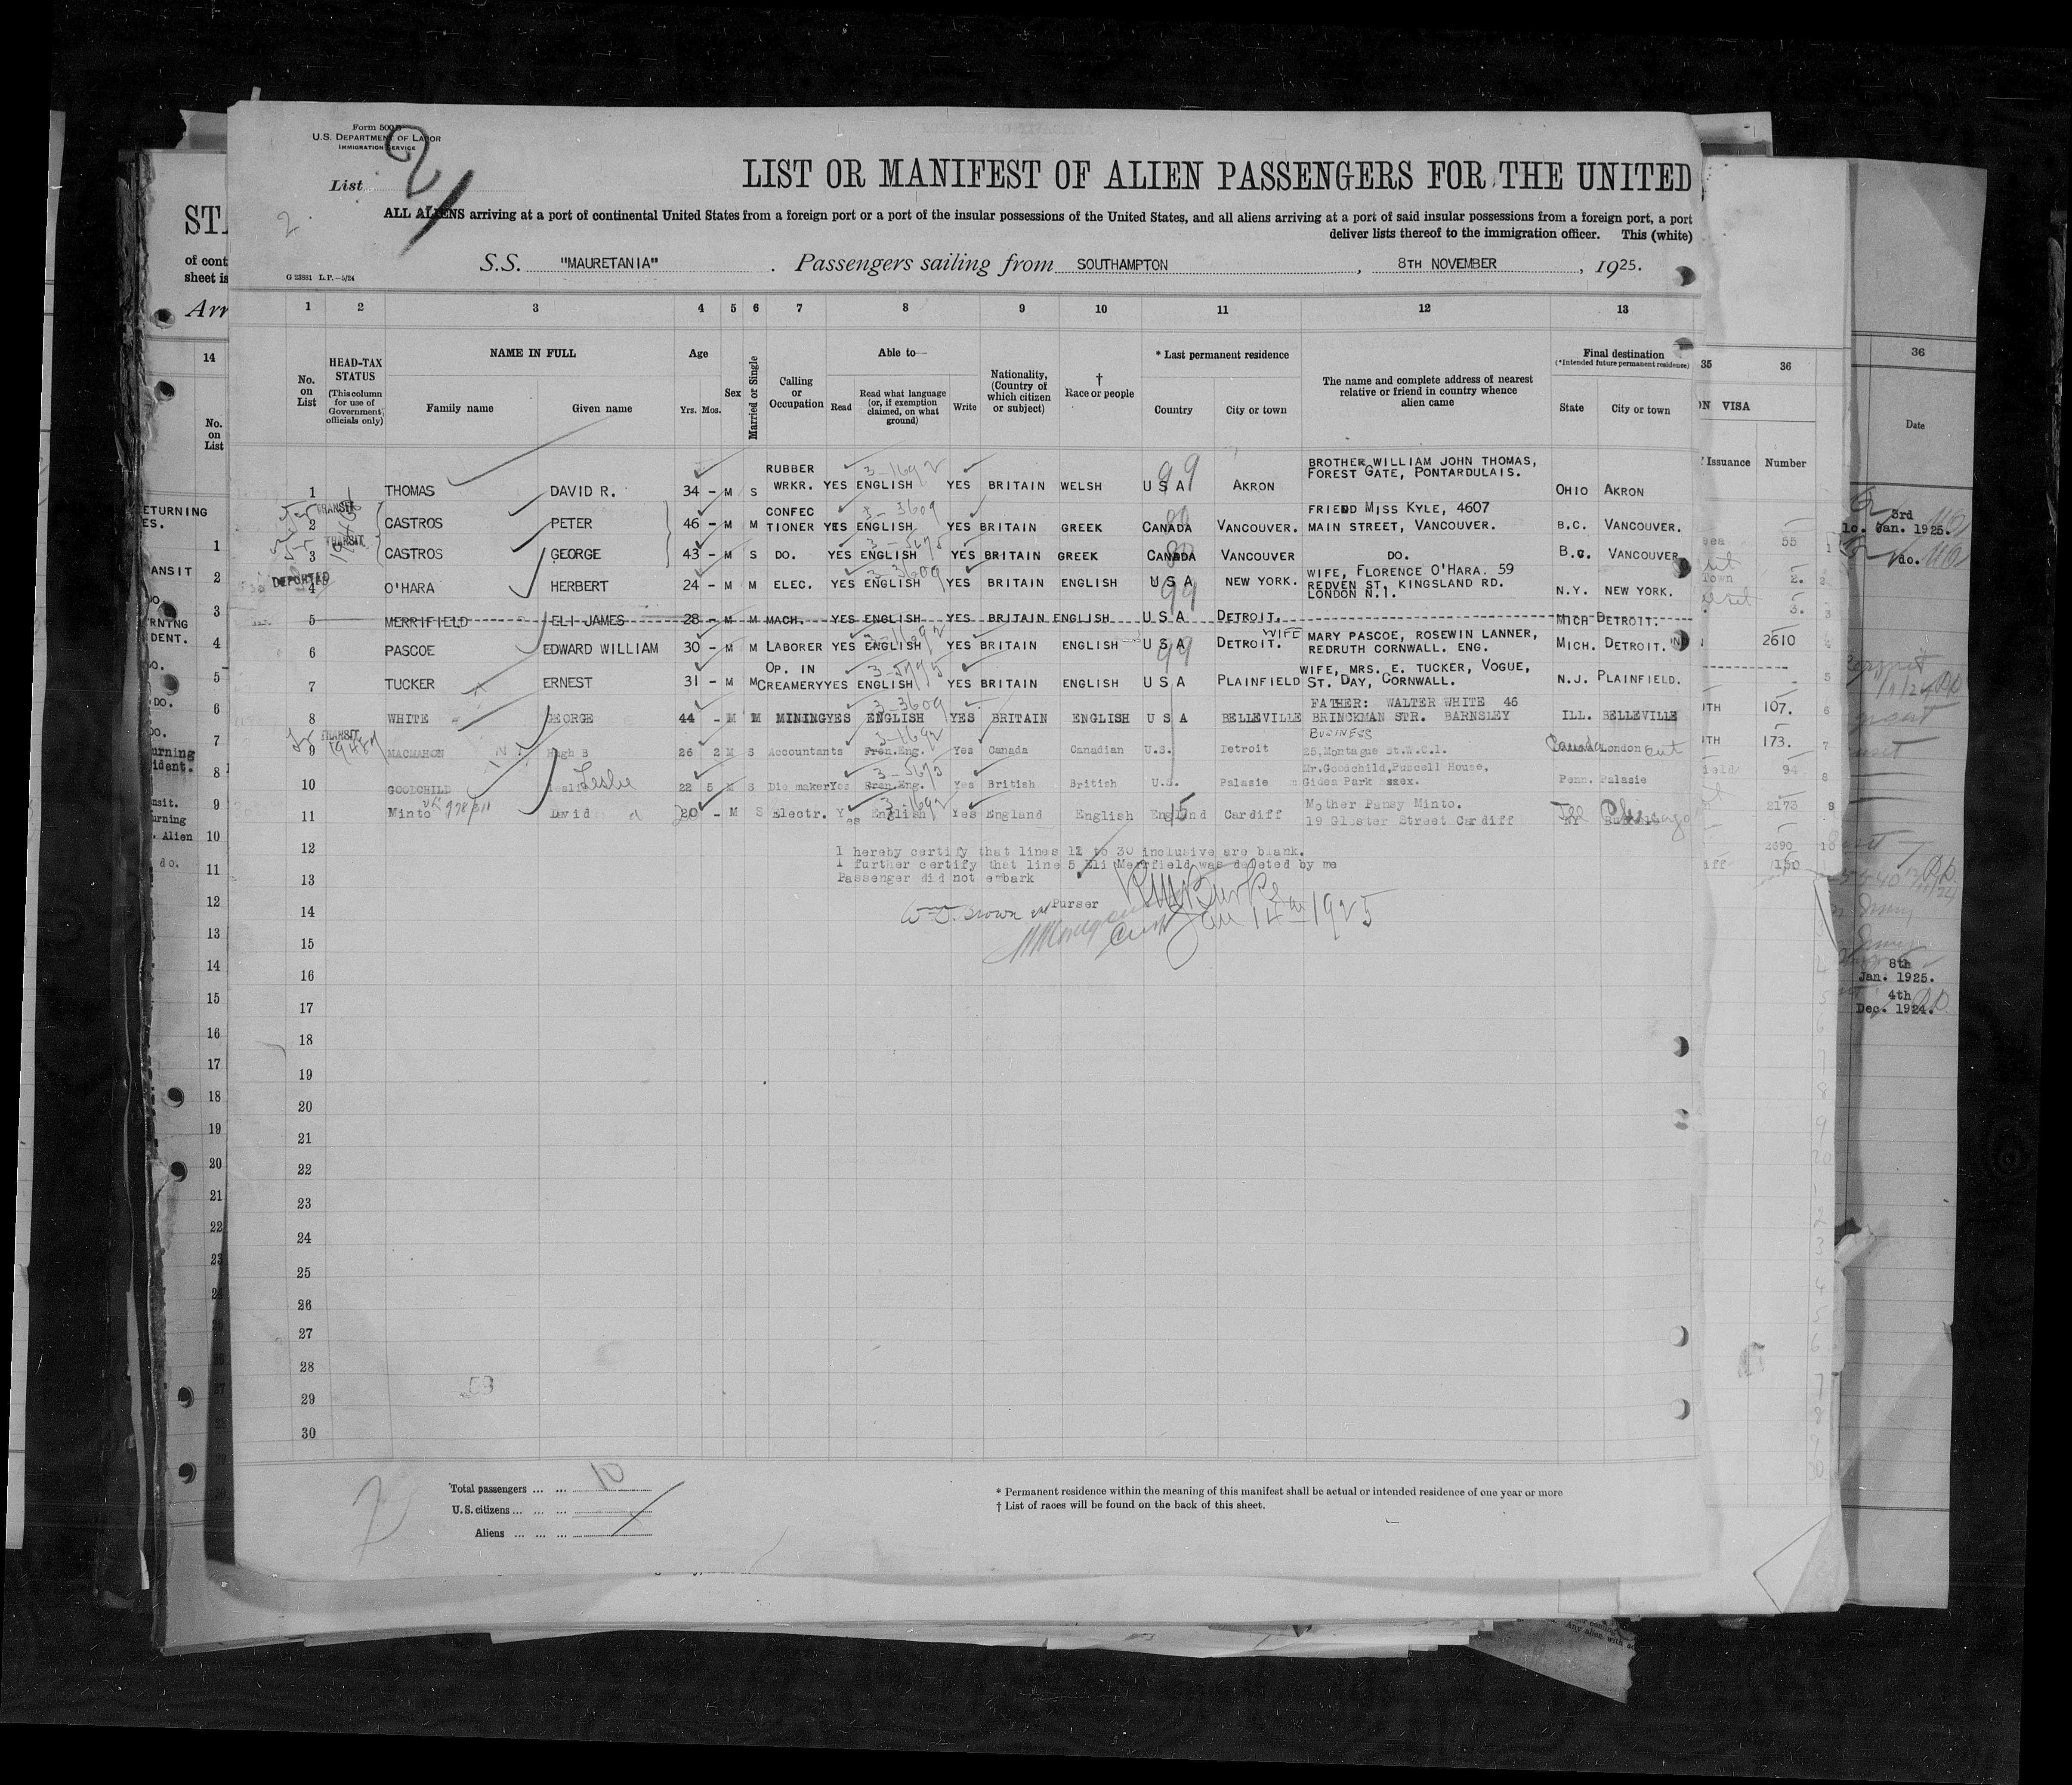 Form 500 B
U.S. DEPARTMENT OF LABOR
IMMIGRATION SERVICE
List 2
LIST OR MANIFEST OF ALIEN PASSENGERS FOR THE UNITED
ALL ALIENS arriving at a port of continental United States from a foreign port or a port of the insular possessions of the United States, and all aliens arriving at a port of said insular possessions from a foreign port, a port
deliver lists thereof to the immigration officer. This (white)
G 23881 L.P.—5/24
S.S. "MAURETANIA". Passengers sailing from SOUTHAMPTON, 8TH NOVEMBER, 1925.
1 2 3 4 5 6 7 8 9 10 11 12 13
No. on List
HEAD-TAX STATUS (This column for use of Government officials only)
NAME IN FULL
Family name Given name
Age
Yrs. Mos.
Sex
Married or Single
Calling or Occupation
Able to—
Read Read what language (or, if exemption claimed, on what ground) Write
Nationality, (Country of which citizen or subject)
† Race or people
* Last permanent residence
Country City or town
The name and complete address of nearest relative or friend in country whence alien came
Final destination
(*Intended future permanent residence)
State City or town
1 THOMAS DAVID R. 34 - M S RUBBER WRKR. YES ENGLISH YES BRITAIN WELSH U S A AKRON BROTHER WILLIAM JOHN THOMAS, FOREST GATE, PONTARDULAIS. OHIO AKRON
2 TRANSIT CASTROS PETER 46 - M M CONFECTIONER YES ENGLISH YES BRITAIN GREEK CANADA VANCOUVER. FRIEND MISS KYLE, 4607 MAIN STREET, VANCOUVER. B.C. VANCOUVER.
3 TRANSIT CASTROS GEORGE 43 - M S DO. YES ENGLISH YES BRITAIN GREEK CANADA VANCOUVER DO. B.C. VANCOUVER
4 DEPORTED O'HARA HERBERT 24 - M M ELEC. YES ENGLISH YES BRITAIN ENGLISH U S A NEW YORK. WIFE, FLORENCE O'HARA. 59 REDVEN ST. KINGSLAND RD. LONDON N.1. N.Y. NEW YORK.
5 MERRIFIELD ELI JAMES 28 - M M MACH. YES ENGLISH YES BRITAIN ENGLISH U S A DETROIT. MICH DETROIT.
6 PASCOE EDWARD WILLIAM 30 - M M LABORER YES ENGLISH YES BRITAIN ENGLISH U S A DETROIT. WIFE MARY PASCOE, ROSEWIN LANNER, REDRUTH CORNWALL. ENG. MICH. DETROIT.
7 TUCKER ERNEST 31 - M M OP. IN CREAMERY YES ENGLISH YES BRITAIN ENGLISH U S A PLAINFIELD WIFE, MRS. E. TUCKER, VOGUE, ST. DAY, CORNWALL. N.J. PLAINFIELD.
8 WHITE GEORGE 44 - M M MINING YES ENGLISH YES BRITAIN ENGLISH U S A BELLEVILLE FATHER: WALTER WHITE 46 BRINCKMAN STR. BARNSLEY ILL. BELLEVILLE
9 TRANSIT MACMAHON Hugh B 26 2 M S Accountant Yes Fren.Eng. Yes Canada Canadian U.S. Detroit BUSINESS 25.Montague St.W.C.1. Canada London Ont
10 GOODCHILD Leslie 22 5 M S Die maker Yes Fren.Eng. Yes British British U.S. Palasie Mr.Goodchild,Puscell House, Gidea Park Essex. Penn. Palasie
11 Minto David 20 - M S Electr. Yes English Yes England English England Cardiff Mother Pansy Minto. 19 Gloster Street Cardiff Ill Chicago
12 I hereby certify that lines 12 to 30 inclusive are blank.
I further certify that line 5 Eli Merrfield was deleted by me
13 Passenger did not embark
Purser
14 Jan 14th 1925
15
16
17
18
19
20
21
22
23
24
25
26
27
28
29
30
Total passengers ... ... 10
U.S. citizens ... ... ...
Aliens ... ... ...
* Permanent residence within the meaning of this manifest shall be actual or intended residence of one year or more
† List of races will be found on the back of this sheet.
of cont
sheet is
Arr
14
No. on List
35 36
ON VISA
Issuance Number
55
2.
3.
2610
107.
173.
94
2173
2690
150
36
Date
3rd
Jan. 1925.
do.
8th
Jan. 1925.
4th
Dec. 1924.